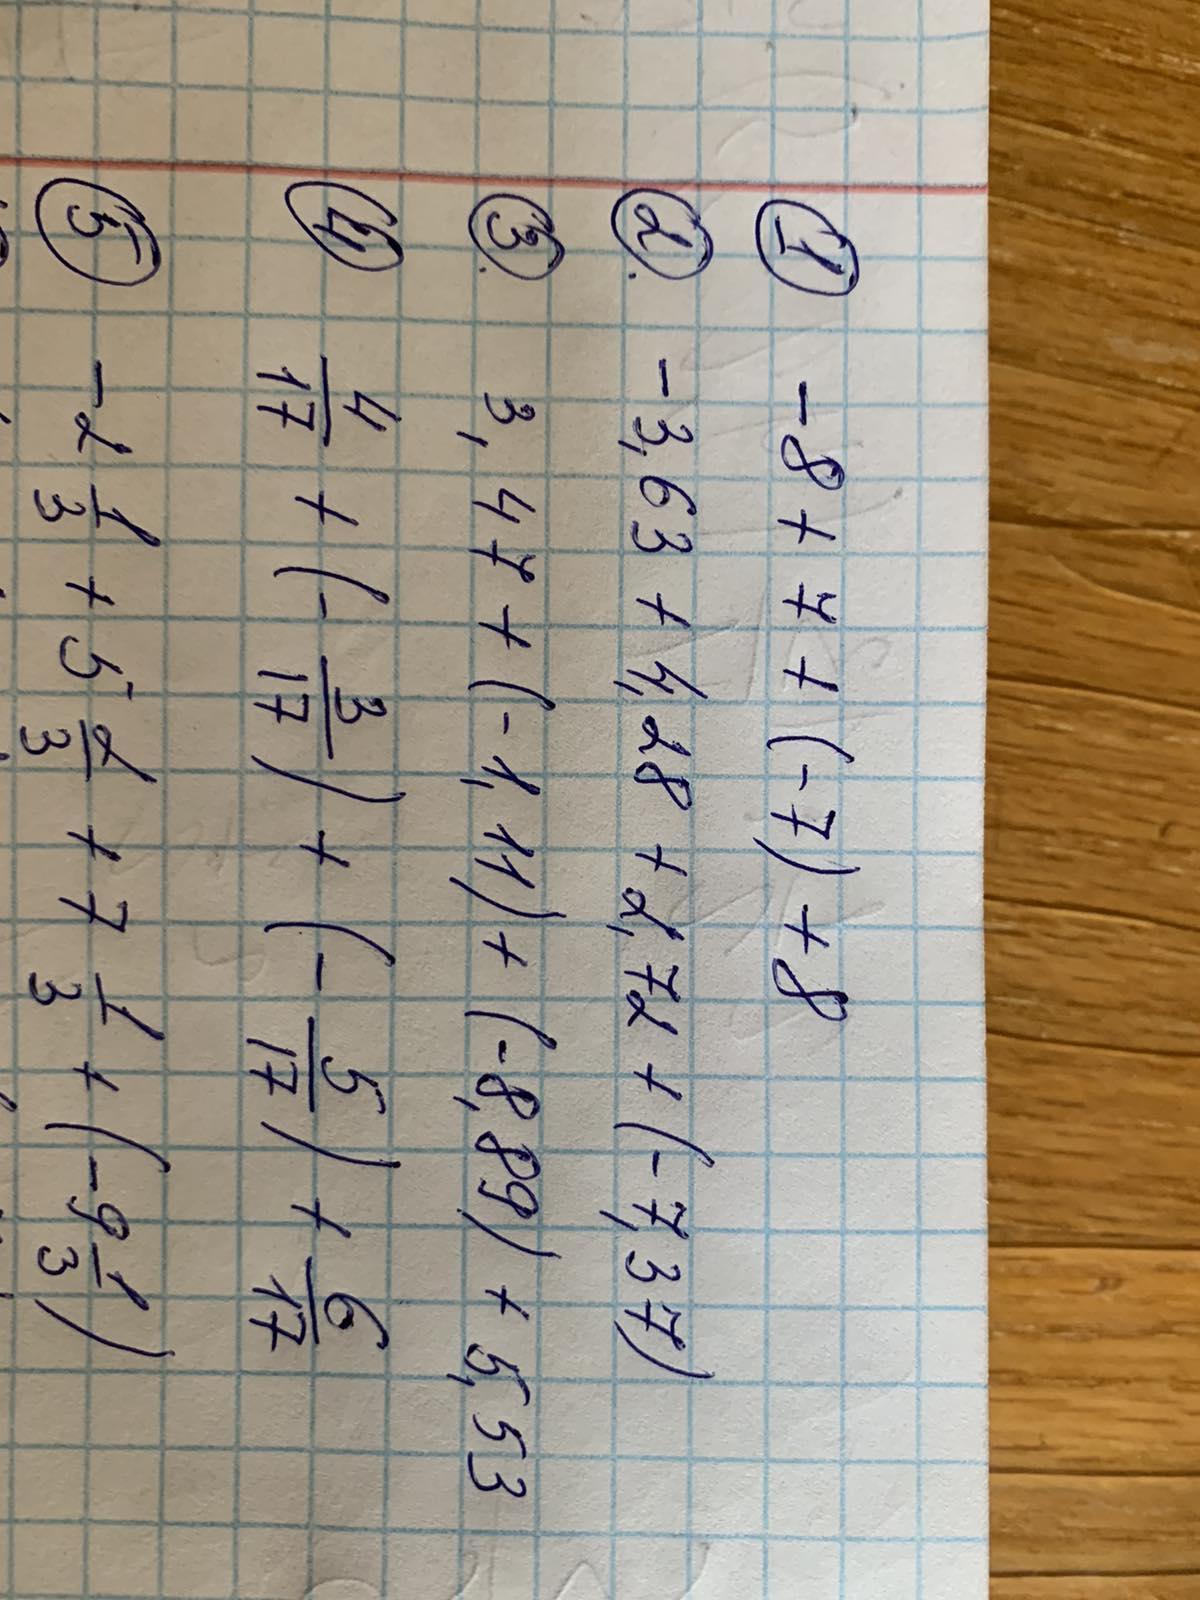 ① -8 + 7 + (-7) + 8
②. -3,63 + 4,28 + 2,72 + (-7,37)
③. 3,47 + (-1,11) + (-8,89) + 5,53
④ 4/17 + (-3/17) + (-5/17) + 6/17
⑤ -2 1/3 + 5 2/3 + 7 1/3 + (-9 1/3)